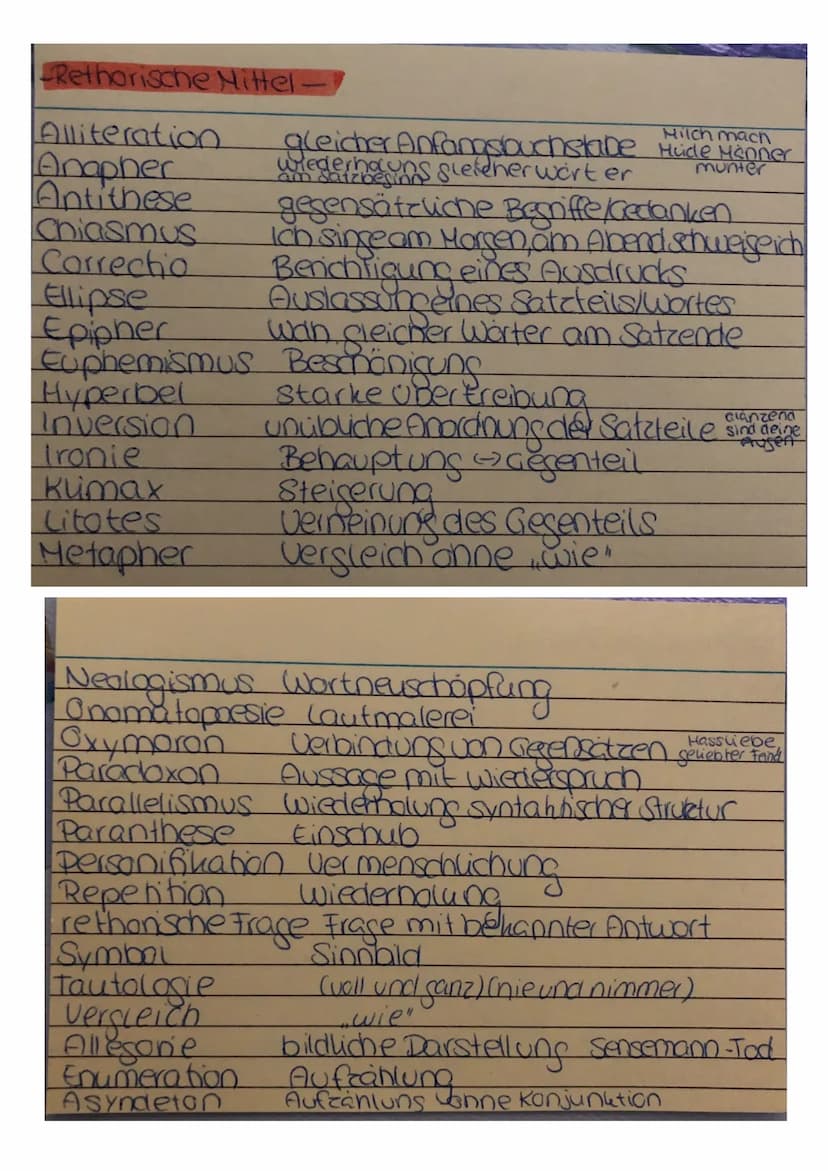 -Rethorische Mittel-
Alliteration gleicher Anfangsbuchstabe Milch mach
Müde Männer
munter
Anapher wiederholung gleicher wörter
am satzbeginn
Antithese gegensätzliche Begriffe/Gedanken
Chiasmus Ich singe am Morgen, am Abend schweige ich
Correctio Berichtigung eines Ausdrucks
Ellipse Auslassung eines Satzteils/Wortes
Epipher Wdh. gleicher Wörter am Satzende
Euphemismus Beschönigung
Hyperbel starke Übertreibung
Inversion unübliche Anordnung der Satzteile glänzend
sind deine
Augen
Ironie Behauptung ↔ Gegenteil
Klimax Steigerung
Litotes Verneinung des Gegenteils
Metapher Vergleich ohne „wie"
Neologismus Wortneuschöpfung
Onomatopoesie Lautmalerei
Oxymoron Verbindung von Gegensätzen Hassliebe
geliebter Feind
Paradoxon Aussage mit Wiederspruch
Parallelismus Wiederholung syntaktischer Struktur
Paranthese Einschub
Personifikation Vermenschlichung
Repetition Wiederholung
rethorische Frage Frage mit bekannter Antwort
Symbol Sinnbild
Tautologie (voll und ganz) (nie und nimmer)
Vergleich „wie"
Allegorie bildliche Darstellung Sensemann-Tod
Enumeration Aufzählung
Asyndeton Aufzählung ohne Konjunktion